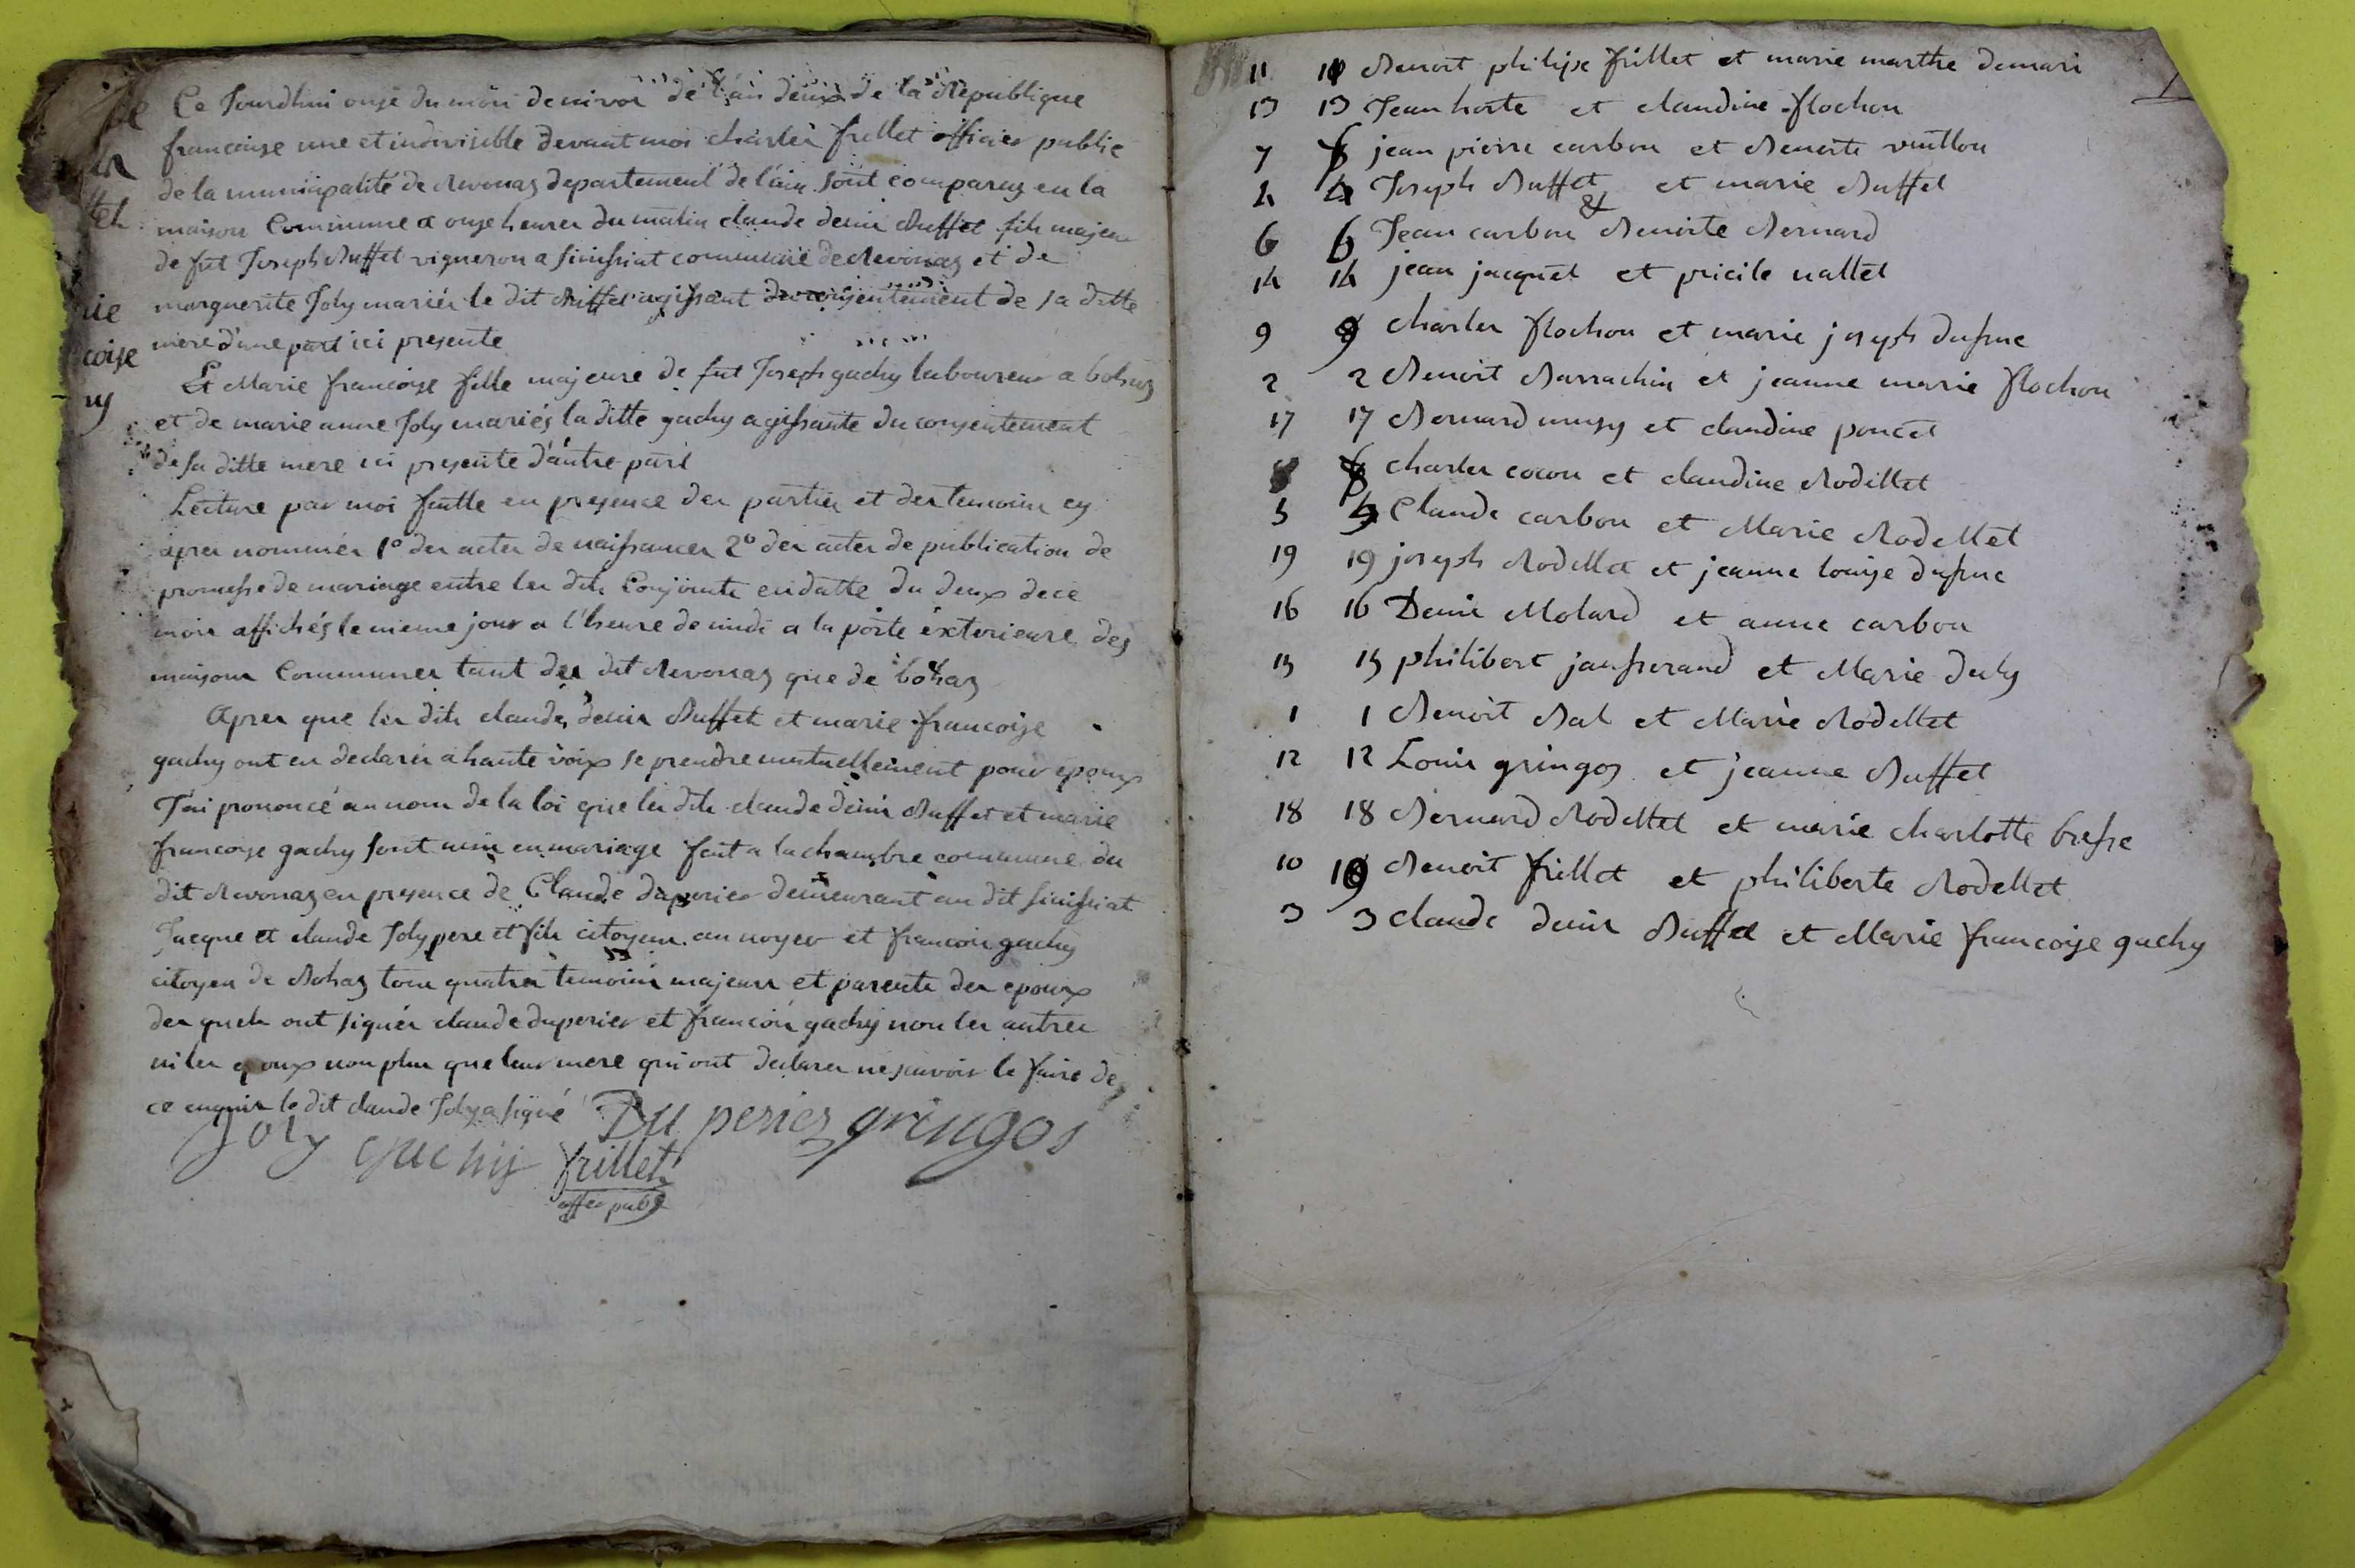 Ce Jourdhui onze du mois de nivos de l'an deux de la Republique
francoise une et indivisible devant moi charles frillet officier public
de la municipalité de Revonaz departement de l'ain sont comparus en la
maison Commune a onze heures du matin claude denis Buffet fils majeur
de fut Joseph Buffet vigneron a Sinissiat commune de Revonaz et de
marguerite Joly mariés le dit Buffet agissant du consentement de sa ditte
mere d'une part ici presente
Et Marie francoise fille majeure de fut Joseph gachy laboureur a bohas
et de marie anne Joly mariés la ditte gachy agissante du consentement
de sa ditte mere ici presente d'autre part
Lecture par moi faitte en presence des parties et des temoins cy
apres nommés 1° des actes de naissances 2° des actes de publication de
promesse de mariage entre les dits Conjoints en datte du deux de ce
mois affichés le meme jour a l'heure de midi a la porte exterieure des
maisons Communes tant du dit Revonaz que de bohas
Apres que les dits claude denis Buffet et marie francoise
gachy ont eu declarés a haute voix se prendre mutuellement pour epoux
J'ai prononcé au nom de la loi que les dits claude denis Buffet et marie
francoise gachy sont unis en mariage fait a la chambre commune du
dit Revonaz en presence de Claude duperier demeurant au dit Sinissiat
Jacque et claude Joly pere et fils citoyens au noyer et francois gachy
citoyen de Bohas tous quatres temoins majeurs et parents des epoux
des quels ont signés claude duperier et francois gachy non les autres
ni les epoux non plus que leur mere qui ont declarer ne savoir le faire de
ce enquis le dit claude Joly a signé Du perier gringoz
Joly gachy frillet
offer publ
ie
coise
uy
11 10 Benoit philipe frillet et marie marthe demari
13 13 Jean horte et claudine flochon
7 jean pierre carbon et Benoite vuillon
4 4 Joseph Buffet et marie Buffet
6 6 Jean carbon & Benoite Bernard
14 14 jean jacquet et pricile nallet
9 9 charles flochon et marie joseph dufrne
2 2 Benoit Barrachin et jeanne marie flochon
17 17 Bernard musy et claudine poncet
8 8 charles cocon et claudine Rodillet
5 5 Claude carbon et Marie Rodellet
19 19 joseph Rodellet et jeanne louise dufrne
16 16 Denis Molard et anne carbon
15 15 philibert janserand et Marie duly
1 1 Benoit Bal et Marie Rodellet
12 12 Louis gringoz et jeanne Buffet
18 18 Bernard Rodellet et marie charlotte bresse
10 10 Benoit frillet et philiberte Rodellet
3 3 claude denis Buffet et Marie francoise gachy